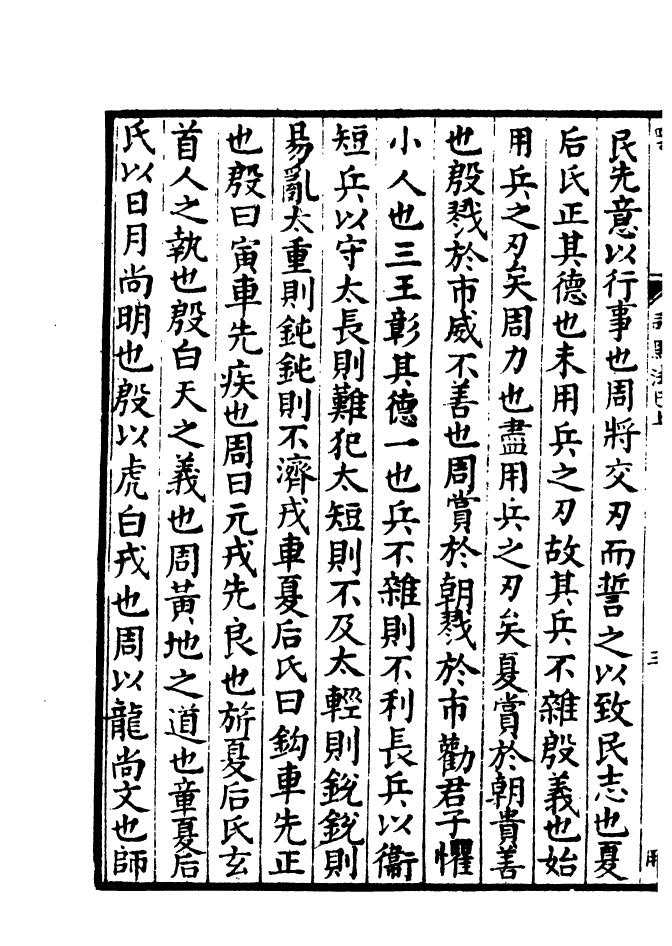 民先意以行事也周將交刃而誓之以致民志也夏
后氏正其德也未用兵之刃故其兵不雜殷義也始
用兵之刃矣周力也盡用兵之刃矣夏賞於朝貴善
也殷戮於市威不善也周賞於朝戮於市勸君子懼
小人也三王彰其德一也兵不雜則不利長兵以衞
短兵以守太長則難犯太短則不及太輕則銳銳則
易亂太重則鈍鈍則不濟戎車夏后氏曰鈎車先正
也殷曰寅車先疾也周曰元戎先良也旂夏后氏玄
首人之執也殷白天之義也周黃地之道也童夏后
氏以日月尚明也殷以虎白戎也周以龍尚文也師